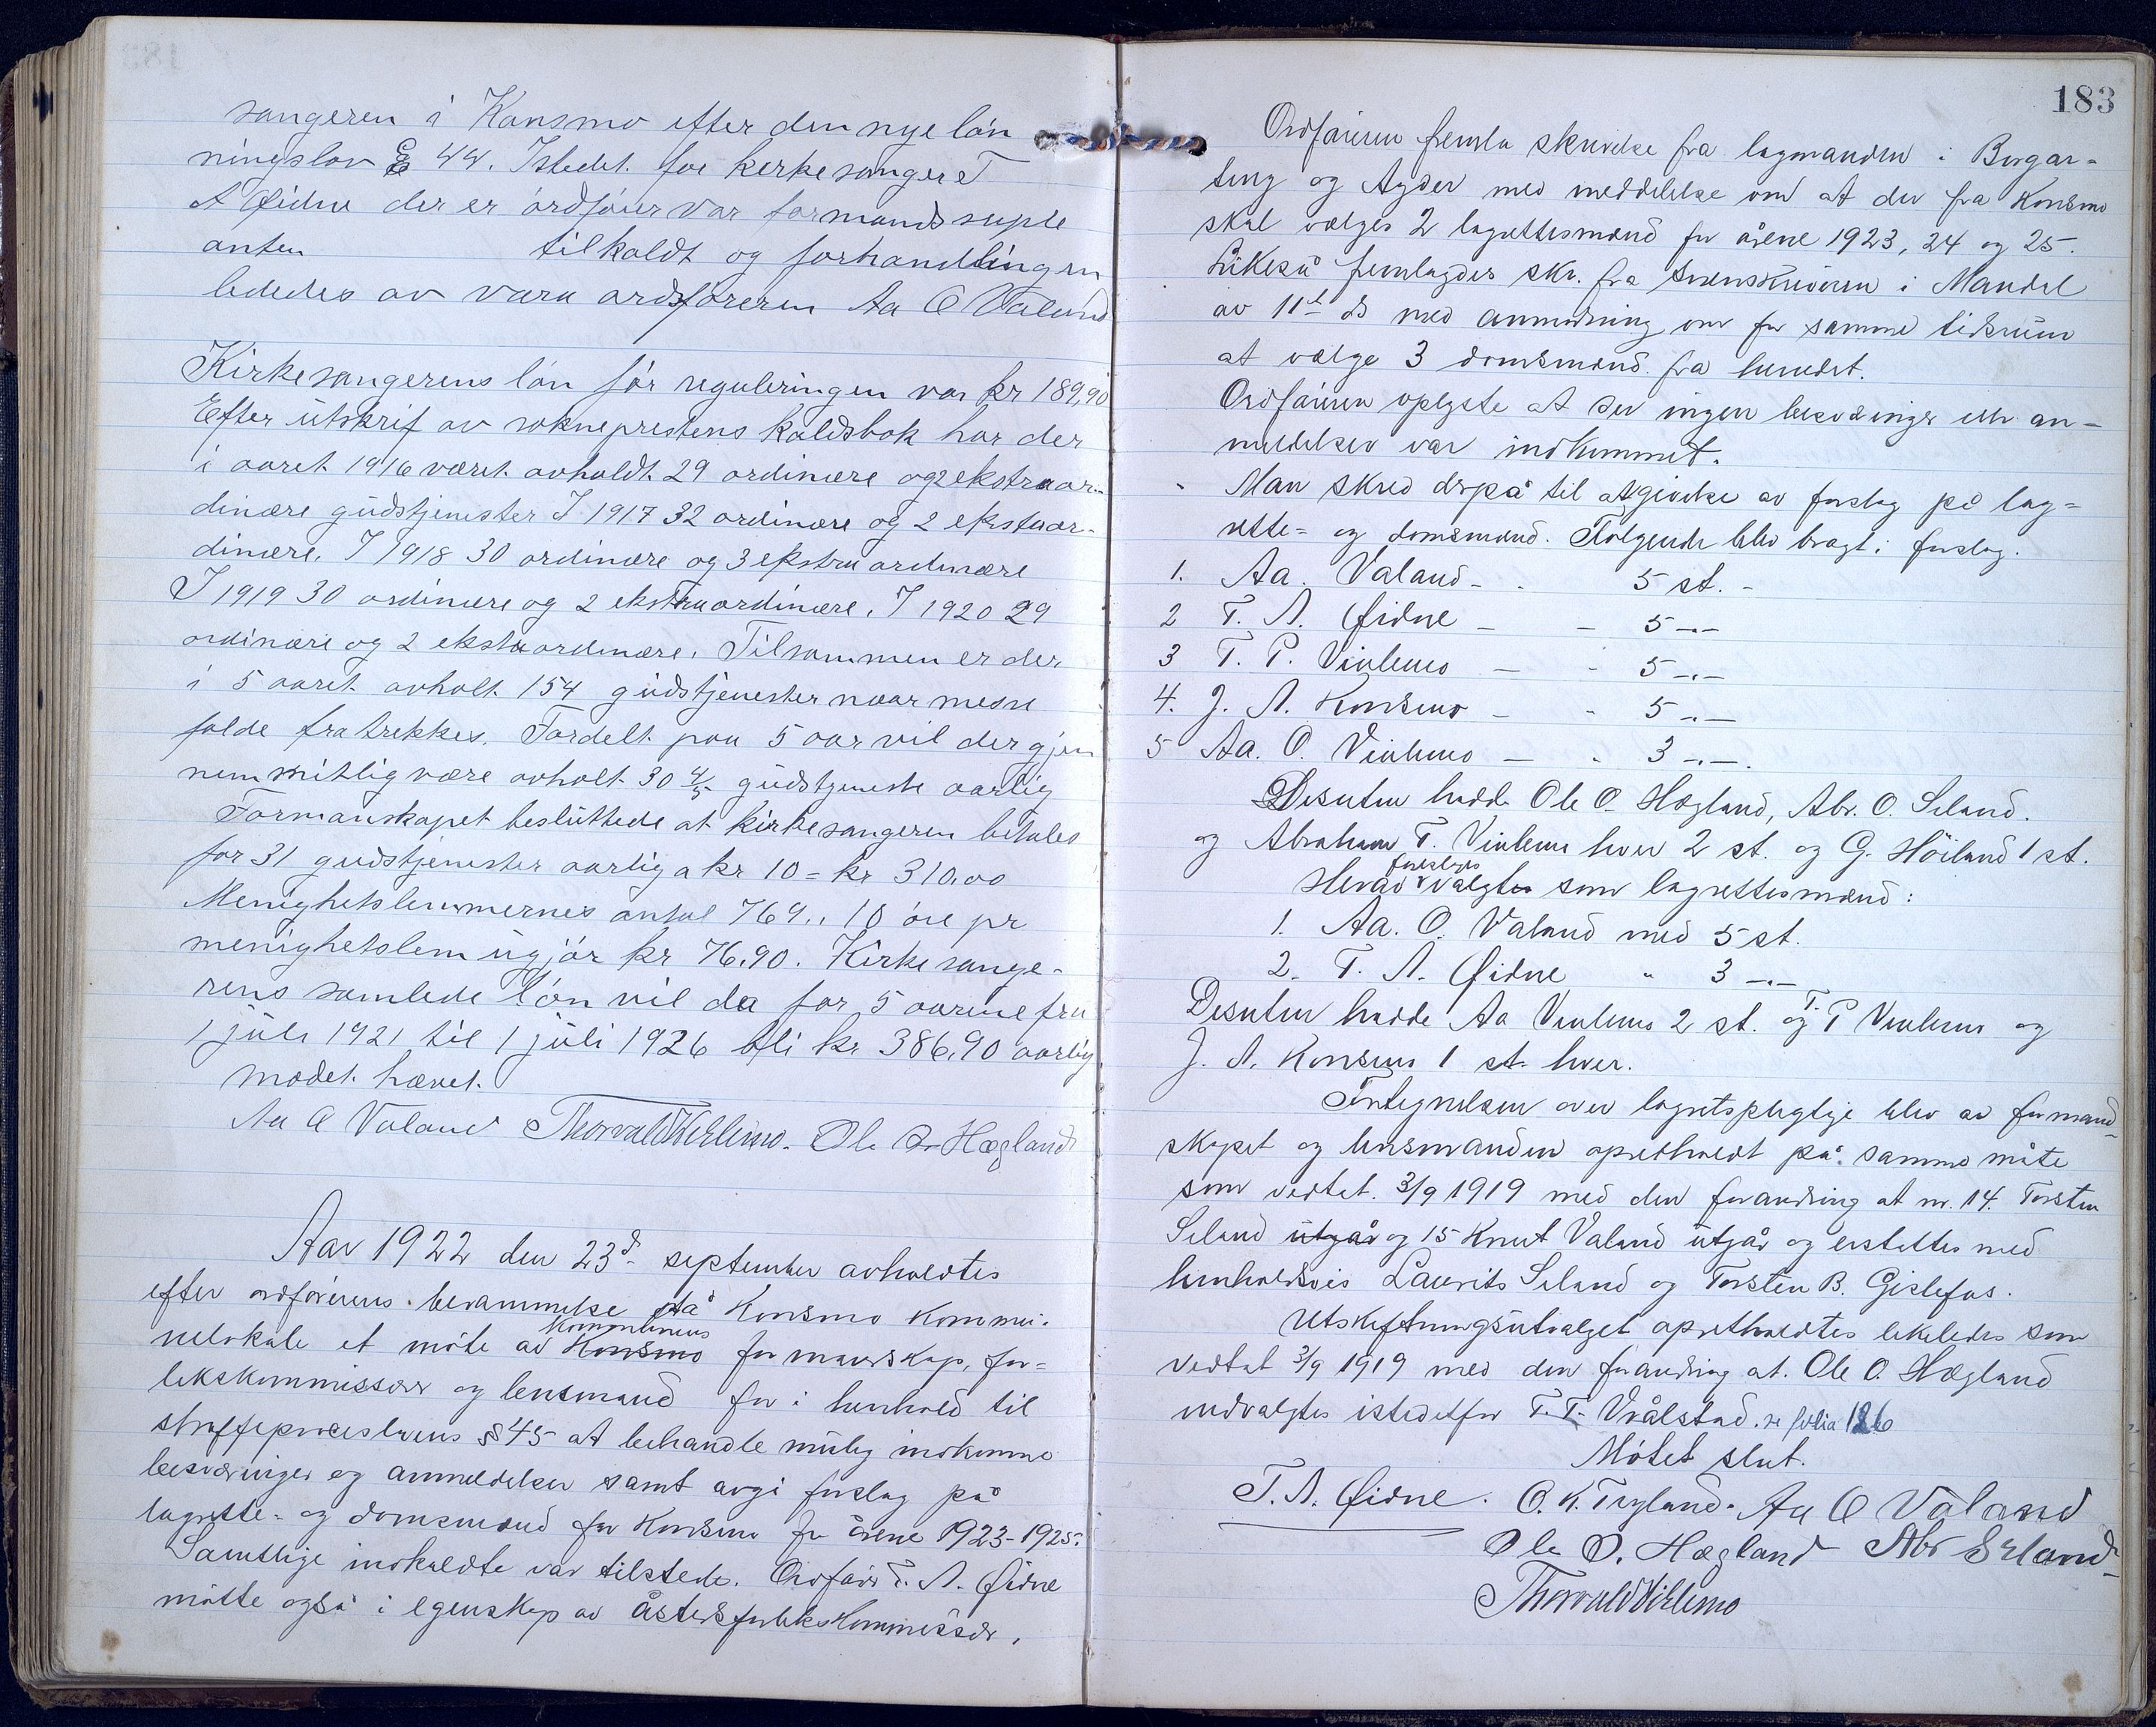 sangeren i Konsmo efter den nye løn
ningslov § 44. Istedet for kirkesanger T
A Øidne der er ordfører var formandssuple
anten tilkaldt og forhandlingen
lededes av vara ordføreren Aa O Valand
Kirkesangerens løn før reguleringen var kr 189,90
Efter utskrif av sokneprestens kaldsbok har der
i aaret 1916 været avholdt 29 ordinære og 2 ekstraor-
dinære gudstjenester I 1917 32 ordinære og 2 ekstaor-
dinære. I 1918 30 ordinære og 3 ekstra ordinære
I 1919 30 ordinære og 2 ekstraordinære. I 1920 29
ordinære og 2 ekstaordinære. Tilsammen er der
i 5 aaret avholt 154 gudstjenester naar messe
falde fratrekkes. Fordelt paa 5 aar vil der gjen
nemmitlig være avholt 30 4/5 gudstjeneste aarlig
Formanskapet besluttede at kirkesangeren betales
for 31 gudstjenester aarlig a kr 10 = kr 310.00
Menighetslemmernes antal 769,. 10 øre pr
menighetslem ugjør kr 76.90. Kirkesange-
rens samlede løn vil da for 5 aarene fra
1 juli 1921 til 1 juli 1926 bli kr 386.90 aarlig
mødet hævet.
Aa O Valand Thorvald Viblemo. Ole O. Hægland
Aar 1922 den 23d september avholdtes
efter ordførerens berammelse på Konsmo kommu-
nelokale et møte av Konsmo kommunenes formandskap, for-
likskommissær og lensmand for i henhold til
straffeproceslovens § 45 at behandle mulig indkomne
besværinger og anmeldelser samt avgi forslag på
lagrette- og domsmænd for Konsmo for årene 1923-1925.
Samtlige indkaldte var tilstede. Ordfører T. A. Øidne
møtte også i egenskap av åstedsforlikskommissær.
183
Ordføreren fremla skrivelse fra lagmanden i Borgar-
ting og Agder med meddelelse om at der fra Konsmo
skal vælges 2 lagrettesmænd for årene 1923, 24 og 25.
Likeså fremlagdes skr. fra sorenskriveren i Mandal
av 11te ds med anmodning om for samme tidsrum
at vælge 3 domsmænd fra herredet.
Ordføreren oplyste at der ingen besværinger eller an-
meldelser var indkommet.
Man skred derpå til avgivelse av forslag på lag-
rette- og domsmænd. Følgende blev bragt i forslag.
1. Aa. Valand - - 5 st. -
2 T. A. Øidne - - 5 -"-
3 T. P. Viblemo - - 5 -"-
4. J. A. Konsmo - - 5 -"-
5 Aa. O. Viblemo - - 3 -"-.
Desuten hadde Ole O. Hægland, Abr. O. Seland.
og Abraham T. Viblemo hver 2 st. og G. Høiland 1 st.
Herav foreslages valgtes som lagrettesmænd:
1. Aa. O. Valand med 5 st.
2. T. A. Øidne " 3 -"-
Desuten hadde Aa Viblemo 2 st. og T. P Viblemo og
J. A. Konsmo 1 st. hver.
Fortegnelsen over lagretspligtige blev av formand-
skapet og lensmanden opretholdt på samme måte
som vedtat 3/9 1919 med den forandring at nr. 14. Torsten
Seland utgår og 15 Knut Valand utgår og erstattes med
henholdsvis Laurits Seland og Torsten B. Gislefos.
Utskiftningsutvalget opretholdtes likeledes som
vedtat 3/9 1919 med den forandring at Ole O. Hægland
indvalgtes istedetfor T. T. Vrålstad. se folia 126
Møtet slut.
T. A. Øidne. O. K. Tryland. Aa O Valand
Ole O. Hægland Abr Seland
Thorvald Viblemo